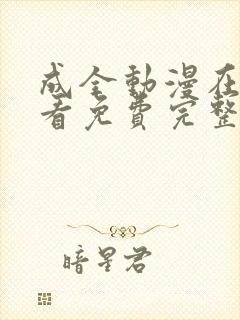 成全動漫在
看免費完整
暗星君